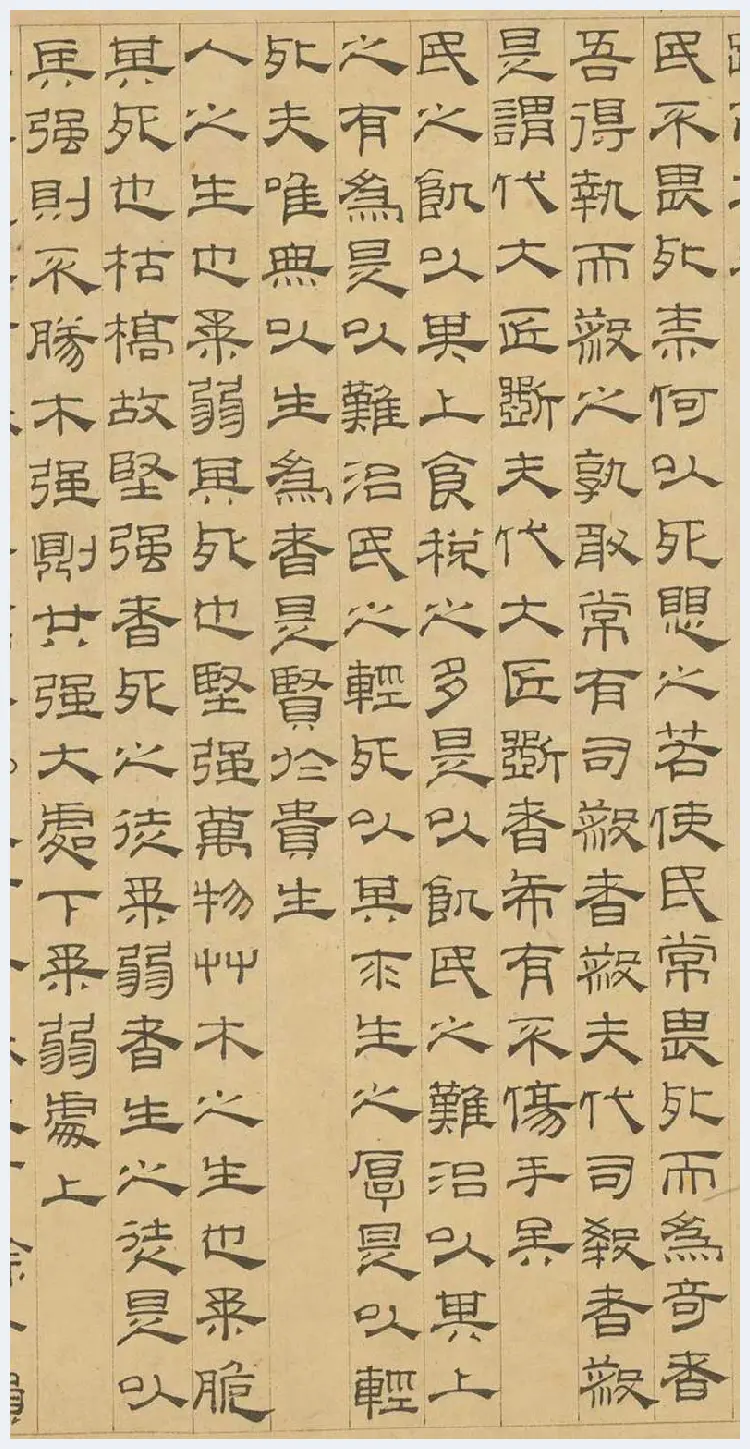 民不畏死柰何以死思之若使民常畏死而為奇者
吾得執而殺之孰敢常有司殺者殺夫代司殺者殺
是謂代大匠斲夫代大匠斲者希有不傷手矣
民之飢以其上食稅之多是以飢民之難治以其上
之有為是以難治民之輕死以其求生之厚是以輕
死夫唯無以生為者是賢於貴生
人之生也柔弱其死也堅强萬物艸木之生也柔脆
其死也枯槁故堅强者死之徒柔弱者生之徒是以
兵强則不勝木强則共强大處下柔弱處上